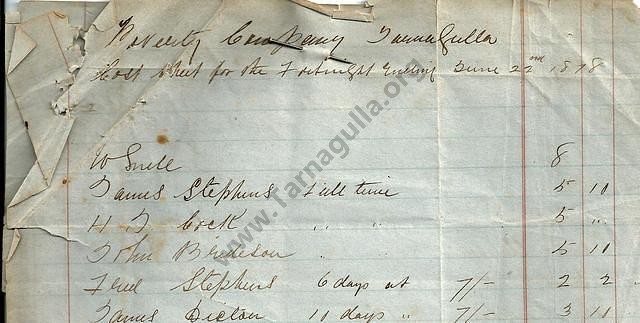 Poverty Company Tarnagulla
Cost Sheet for the Fortnight Ending June 22nd 1878
W Snell 8
James Stephens Full time 5 10
H J Cock " " 5 "
John 5 10
Fred Stephens 6 days at 7/- 2 2
James 10 days " 7/- 3 10
www.tarnagulla.org